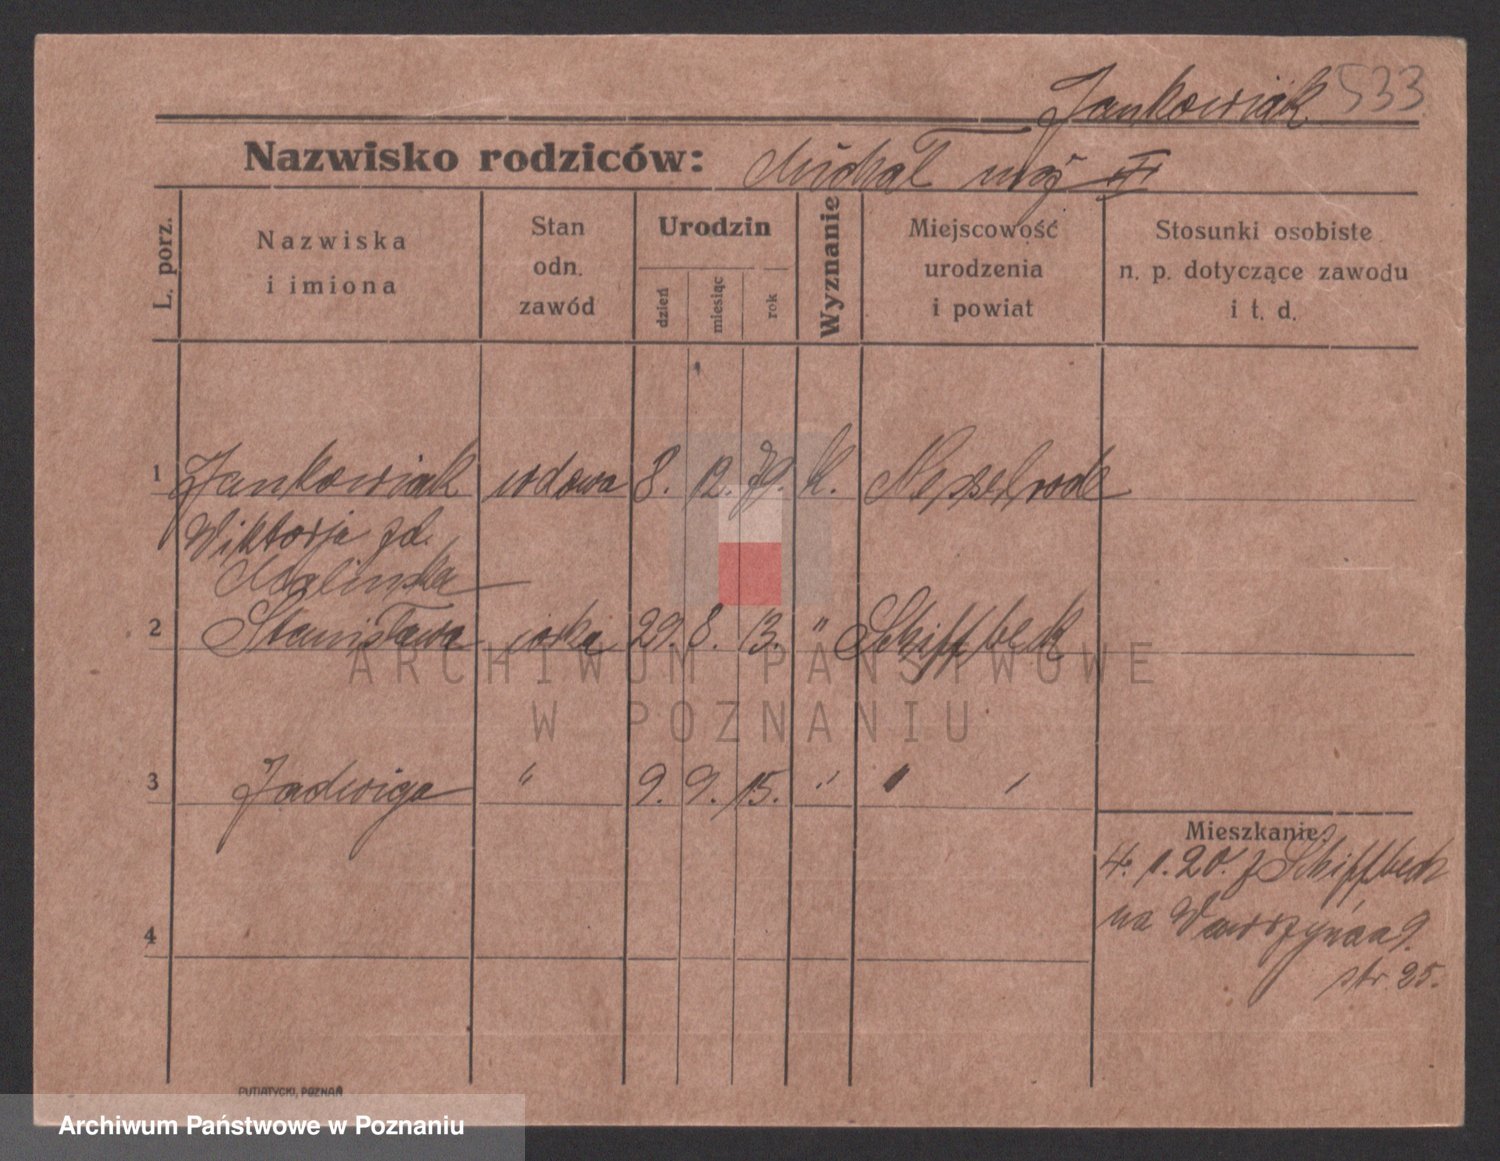 Jankowiak 533
Nazwisko rodziców: Michał mąż
L. porz.
Nazwiska
i imiona
Stan
odn.
zawód
Urodzin
dzień
miesiąc
rok
Wyznanie
Miejscowość
urodzenia
i powiat
Stosunki osobiste
n. p. dotyczące zawodu
i t. d.
1 Jankowiak wdowa 8. 12. 79. k. Nesselrode
Wiktorja zd.
2 Stanisława córka 29. 8. 13. " Schiffbek
ARCHIWUM PAŃSTWOWE
W POZNANIU
3 Jadwiga " 9. 9. 15. " " "
Mieszkanie:
4. 1. 20. z Schiffbeck
4 na Wawrzyńca 9.
str. 25.
PUTIATYCKI, POZNAŃ
Archiwum Państwowe w Poznaniu